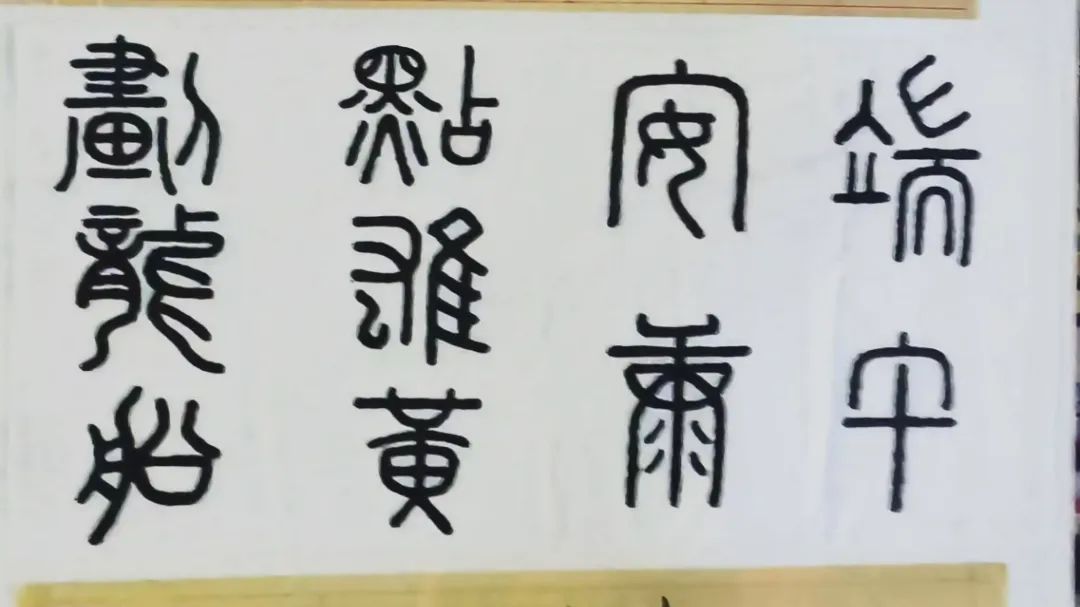 端午
安康
點雄黃
劃龍船